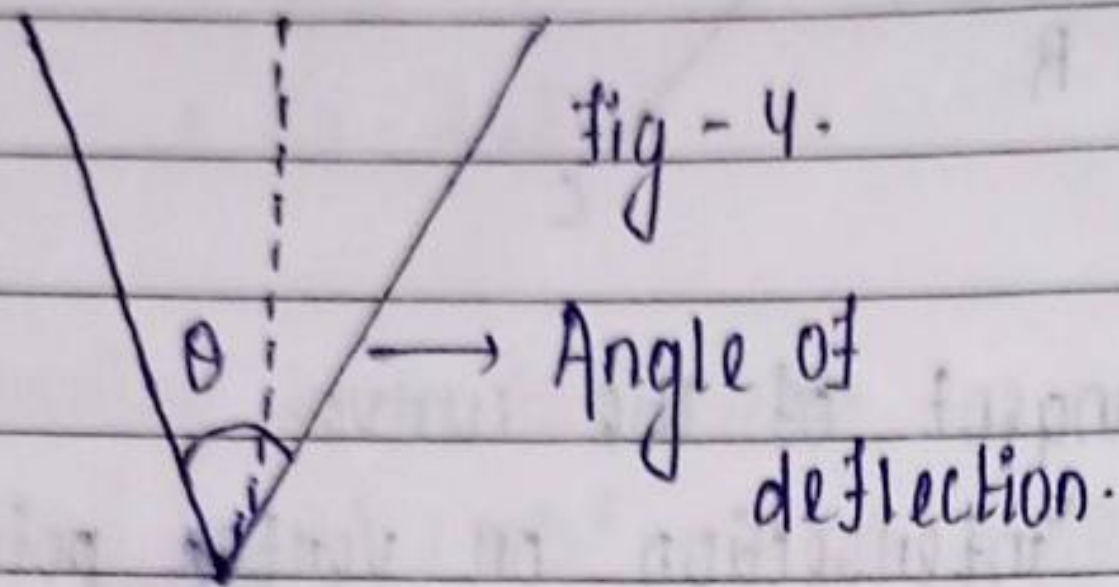 fig - 4.
θ
Angle of
deflection.